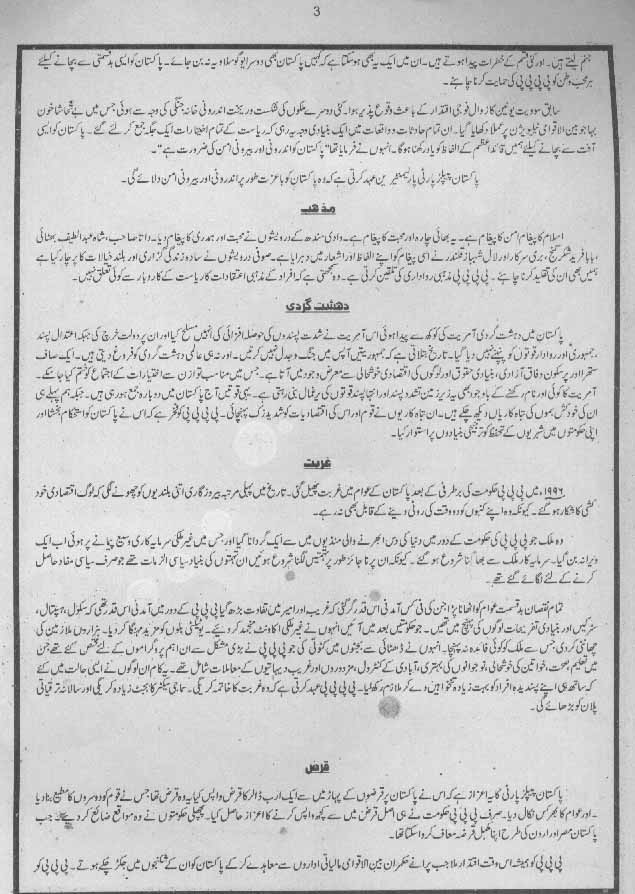 3
جنم لیتے ہیں۔ اور کئی قسم کے خطرات پیدا ہوتے ہیں۔ ان میں ایک یہ بھی ہو سکتا ہے کہ کہیں پاکستان بھی دوسرا یوگوسلاویہ نہ بن جائے۔ پاکستان کو ایسی بدقسمتی سے بچانے کیلئے
ہر محب وطن کو پی پی پی پی کی حمایت کرنا چاہئے۔
سابق سوویت یونین کا زوال فوجی اقتدار کے باعث وقوع پذیر ہوا۔ کئی دوسرے ملکوں کی شکست و ریخت اندرونی خانہ جنگی کی وجہ سے ہوئی جس میں بے تحاشا خون
بہا جو بین الاقوامی ٹیلیویژن پر عملا دکھایا گیا۔ ان تمام حادثات و واقعات میں ایک بنیادی وجہ یہ رہی کہ ریاست کے تمام اختیارات ایک جگہ جمع کر لئے گئے۔ پاکستان کو ایسی
آفت سے بچانے کیلئے ہمیں قائد اعظم کے الفاظ کو یاد رکھنا ہوگا۔ انہوں نے فرمایا تھا "پاکستان کو اندرونی اور بیرونی امن کی ضرورت ہے"۔
پاکستان پیپلز پارٹی پارلیمنٹیرین عہد کرتی ہے کہ وہ پاکستان کو باعزت طور پر اندرونی اور بیرونی امن دلائے گی۔
مذہب
اسلام کا پیغام امن کا پیغام ہے۔ یہ بھائی چارہ اور محبت کا پیغام ہے۔ وادی سندھ کے درویشوں نے محبت اور ہمدردی کا پیغام دیا۔ داتا صاحب، شاہ عبد اللطیف بھٹائی
، بابا فرید شکر گنج، بری سرکار اور لال شہباز قلندر نے اسی پیغام کو اپنے الفاظ اور اشعار میں دہرایا ہے۔ صوفی درویشوں نے سادہ زندگی گزاری اور بلند خیالات کا پرچار کیا ہے
ہمیں بھی ان کی تقلید کرنا چاہئے۔ پی پی پی پی مذہبی رواداری کی تلقین کرتی ہے۔ وہ سمجھتی ہے کہ افراد کے مذہبی اعتقادات کا ریاست کے کاروبار سے کوئی تعلق نہیں۔
دہشت گردی
پاکستان میں دہشت گردی آمریت کی کوکھ سے پیدا ہوئی اس آمریت نے شدت پسندوں کی حوصلہ افزائی کی انہیں مسلح کیا اور ان پر دولت خرچ کی جبکہ اعتدال پسند
، جمہوری اور روادار قوتوں کو پنپنے نہیں دیا گیا۔ تاریخ بتلاتی ہے کہ جمہوریتیں آپس میں جنگ و جدل نہیں کرتیں۔ اور نہ ہی عالمی دہشت گردی کو فروغ دیتی ہیں۔ ایک صاف
ستھرا اور پرسکون دفاق آزادی، بنیادی حقوق اور لوگوں کی اقتصادی خوشحالی سے معرض وجود میں آتا ہے۔ جس میں مناسب توازن سے اختیارات کے اجتماع کو ختم کیا جا سکے۔
آمریت کا کوئی اور نام رکھنے کے باوجود بھی یہ زیر زمین تشدد پسند اور انتہا پسند قوتوں کی یرغمال بنی رہتی ہے۔ یہی قوتیں آج پاکستان میں دوبارہ جمع ہو رہی ہیں۔ جبکہ ہم پہلے ہی
ان کی خود کش بموں کی تباہ کاریاں دیکھ چکے ہیں۔ ان تباہ کاریوں نے قوم اور اس کی اقتصادیات کو شدید زک پہنچائی۔ پی پی پی پی کو فخر ہے کہ اس نے پاکستان کو استحکام بخشا اور
اپنی حکومتوں میں شہریوں کے تحفظ کو ترجیحی بنیادوں پر استوار کیا۔
غربت
۱۹۹۶ء میں پی پی پی حکومت کی برطرفی کے بعد پاکستان کے عوام میں غربت پھیل گئی۔ تاریخ میں پہلی مرتبہ بیروزگاری اتنی بلندیوں کو چھونے لگی کہ لوگ اقتصادی خود
کشی کا شکار ہو گئے۔ کیونکہ وہ اپنے کنبوں کو دو وقت کی روٹی دینے کے قابل بھی نہ رہے۔
وہ ملک جو پی پی پی کی حکومت کے دور میں دنیا کی دس ابھرنے والی منڈیوں میں سے ایک گردانا گیا اور جس میں غیر ملکی سرمایہ کاری وسیع پیمانے پر ہوئی اب ایک
ویرانہ بن گیا۔ سرمایہ کار ملک سے بھاگنا شروع ہو گئے۔ کیونکہ ان پر ناجائز طور پر تہمتیں لگنا شروع ہوئیں ان تہمتوں کی بنیاد سیاسی الزامات تھے جو صرف سیاسی مفاد حاصل
کرنے کے لئے لگائے گئے تھے۔
تمام نقصان بدقسمت عوام کو اٹھانا پڑا جن کی فی کس آمدنی اس قدر گر گئی کہ غریب اور امیر میں تفاوت بڑھ گیا پی پی پی کے دور میں آمدنی اس قدر تھی کہ سکول، ہسپتال،
سڑکیں اور بنیادی تفریحات لوگوں کی پہنچ میں تھیں۔ جو حکومتیں بعد میں آئیں انہوں نے غیر ملکی اکاونٹ منجمد کر دیئے۔ یوٹیلٹی بلوں کو مزید مہنگا کر دیا۔ ہزاروں ملازمین کی
چھانٹی کر دی جس سے ملک کو کوئی فائدہ نہ پہنچا۔ انہوں نے ڈھٹائی سے بجٹوں میں کٹوتی کی جو پی پی پی نے بڑی مشکل سے ان اہم پروگراموں کے لئے مختص کئے تھے جن
میں تعلیم، صحت، خواتین کی خوشحالی، نوجوانوں کی بہتری، آبادی کے کنٹرول، مزدوروں اور غریب دیہاتیوں کے معاملات شامل تھے۔ یہ کام ان لوگوں نے ایسی حالت میں کئے
کہ ساتھ ہی اپنے پسندیدہ افراد کو بہت زیادہ تنخواہیں دے کر ملازم رکھ لیا۔ پی پی پی پی عہد کرتی ہے کہ وہ غربت کا خاتمہ کریگی۔ سماجی سیکٹر کا بجٹ زیادہ کریگی اور سالانہ ترقیاتی
پلان کو بڑھائے گی۔
قرض
پاکستان پیپلز پارٹی کا یہ اعزاز ہے کہ اس نے پاکستان پر قرضوں کے پہاڑ میں سے ایک ارب ڈالر کا قرض واپس کیا یہ وہ قرض تھا جس نے قوم کو دوسروں کا مطیع بنا دیا
۔ اور عوام کا بھرکس نکال دیا۔ صرف پی پی پی حکومت نے ہی اصل قرض میں سے کچھ واپس کرنے کا اعزاز حاصل کیا۔ پچھلی حکومتوں نے وہ مواقع ضائع کر دیئے جب
پاکستان مصر اور اردن کی طرح اپنا قرضہ معاف کروا سکتا تھا۔
پی پی پی کو ہمیشہ اس وقت اقتدار ملا جب پرانے حکمران بین الاقوامی مالیاتی اداروں سے معاہدے کر کے پاکستان کو ان کے شکنجوں میں جکڑ چکے ہوتے۔ پی پی پی کو